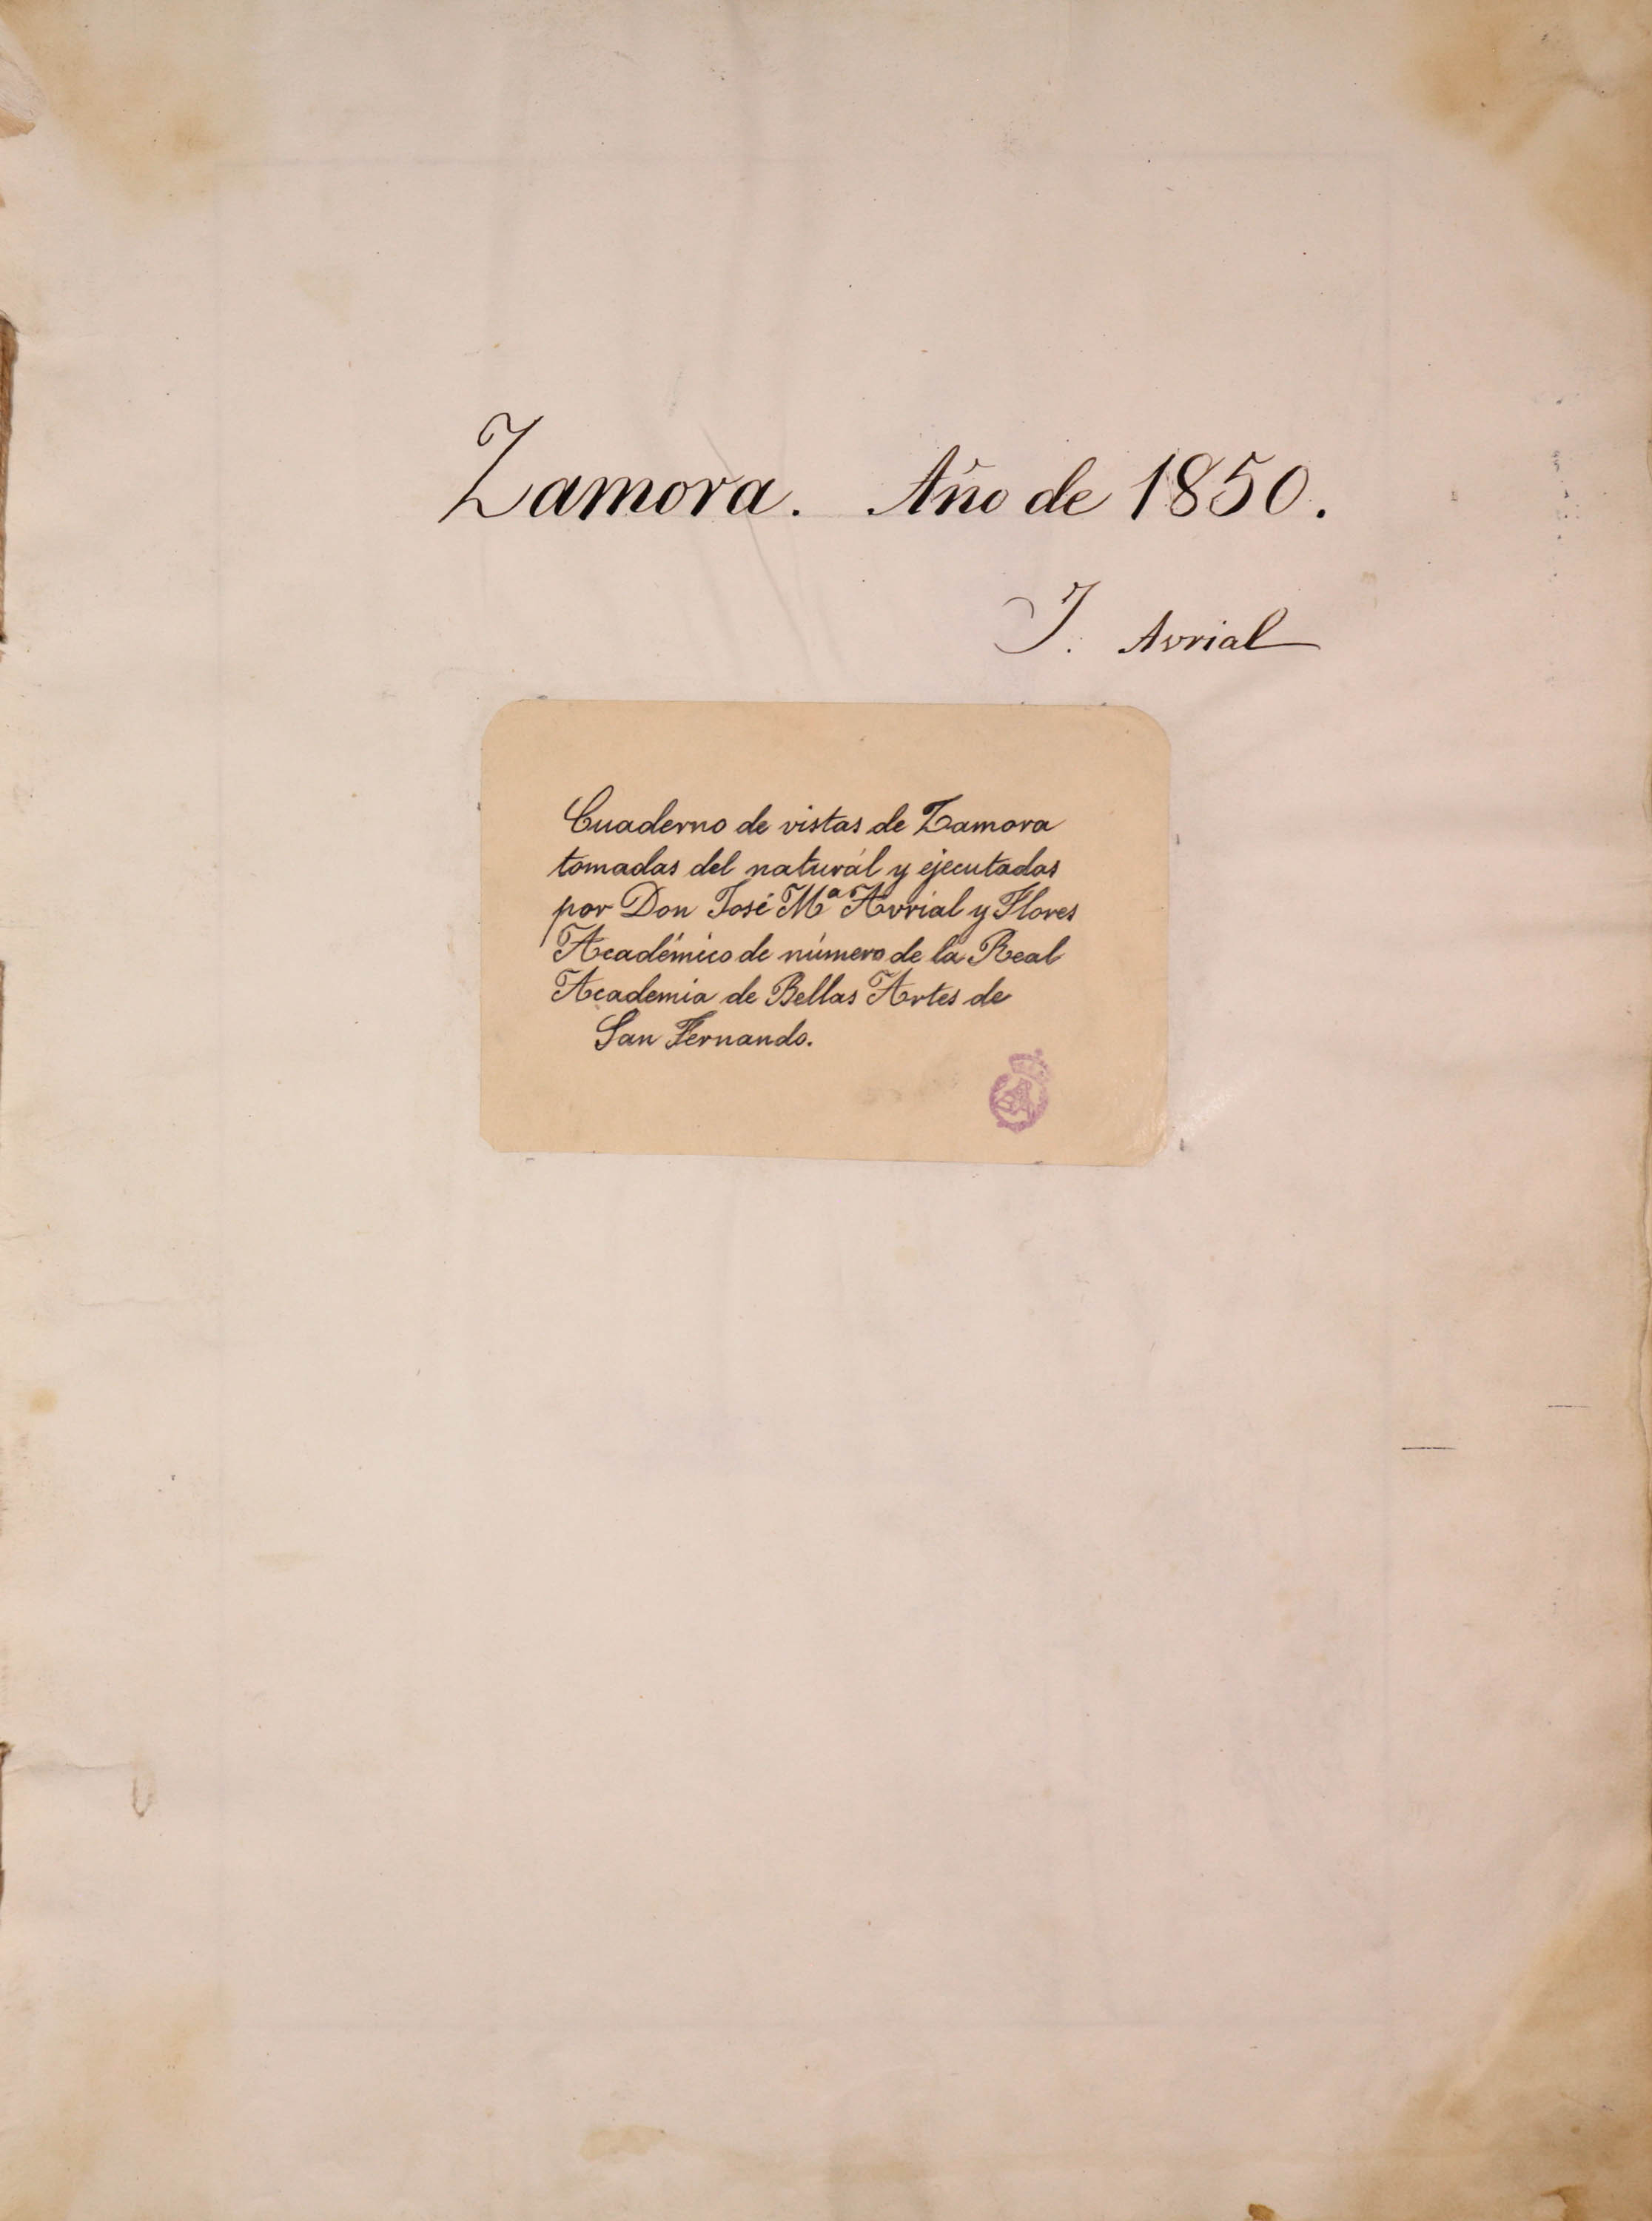 Zamora. Año de 1850.
J. Avrial
Cuaderno de vistas de Zamora
tomadas del naturál y ejecutadas
por Don José Mª Avrial y Flores
Académico de número de la Real
Academia de Bellas Artes de
San Fernando.